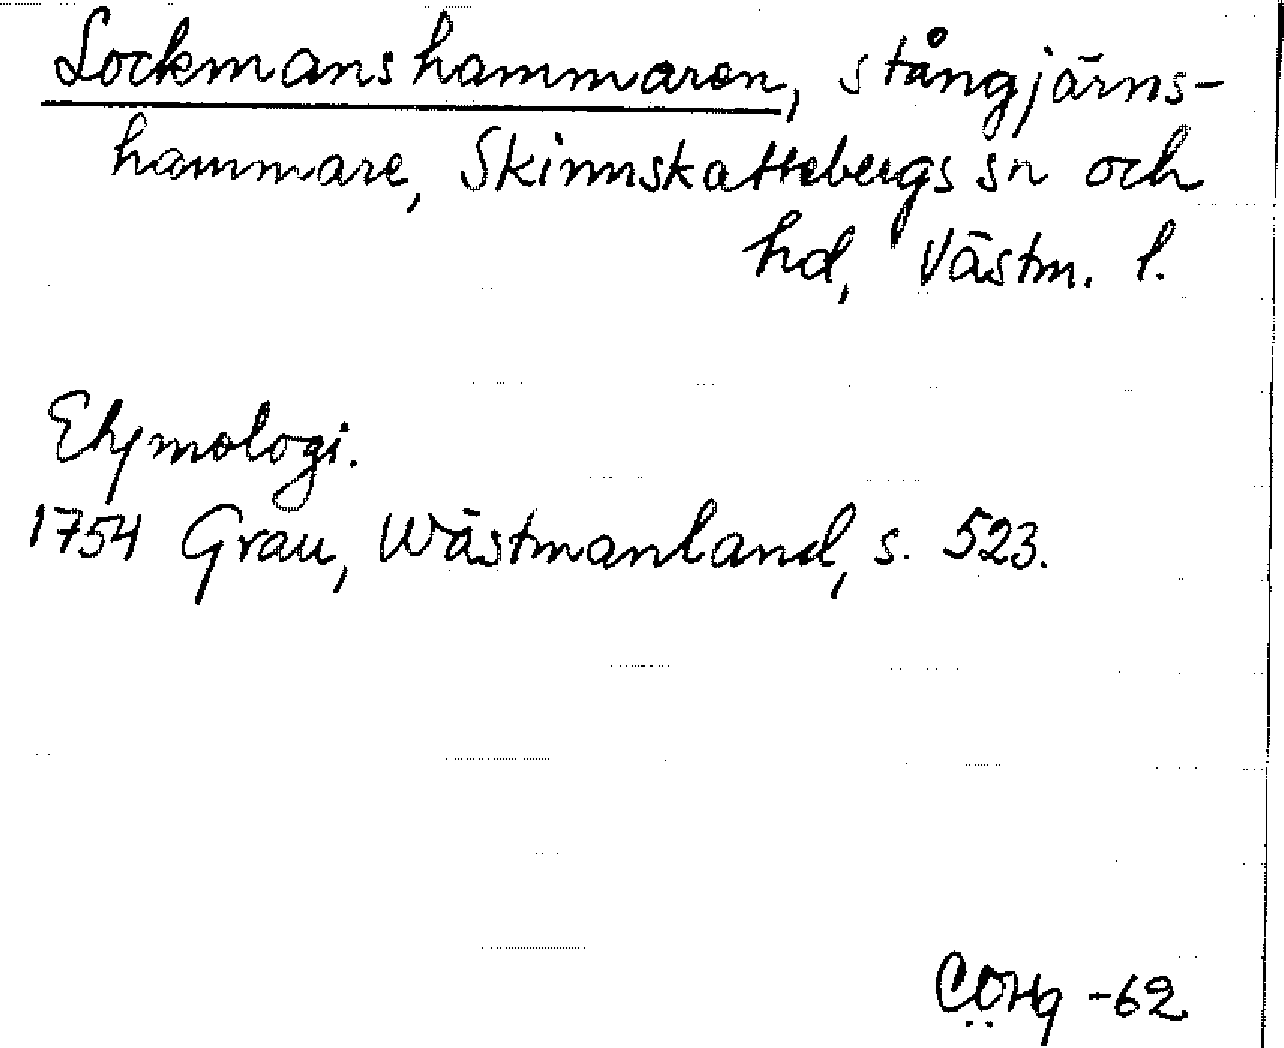 Lockmanshammaren, stångjärns-
hammare, Skinnskattebergs sn och
hd, Västm. l.
Etymologi.
1754 Grau, Wästmanland, s. 523.
-62